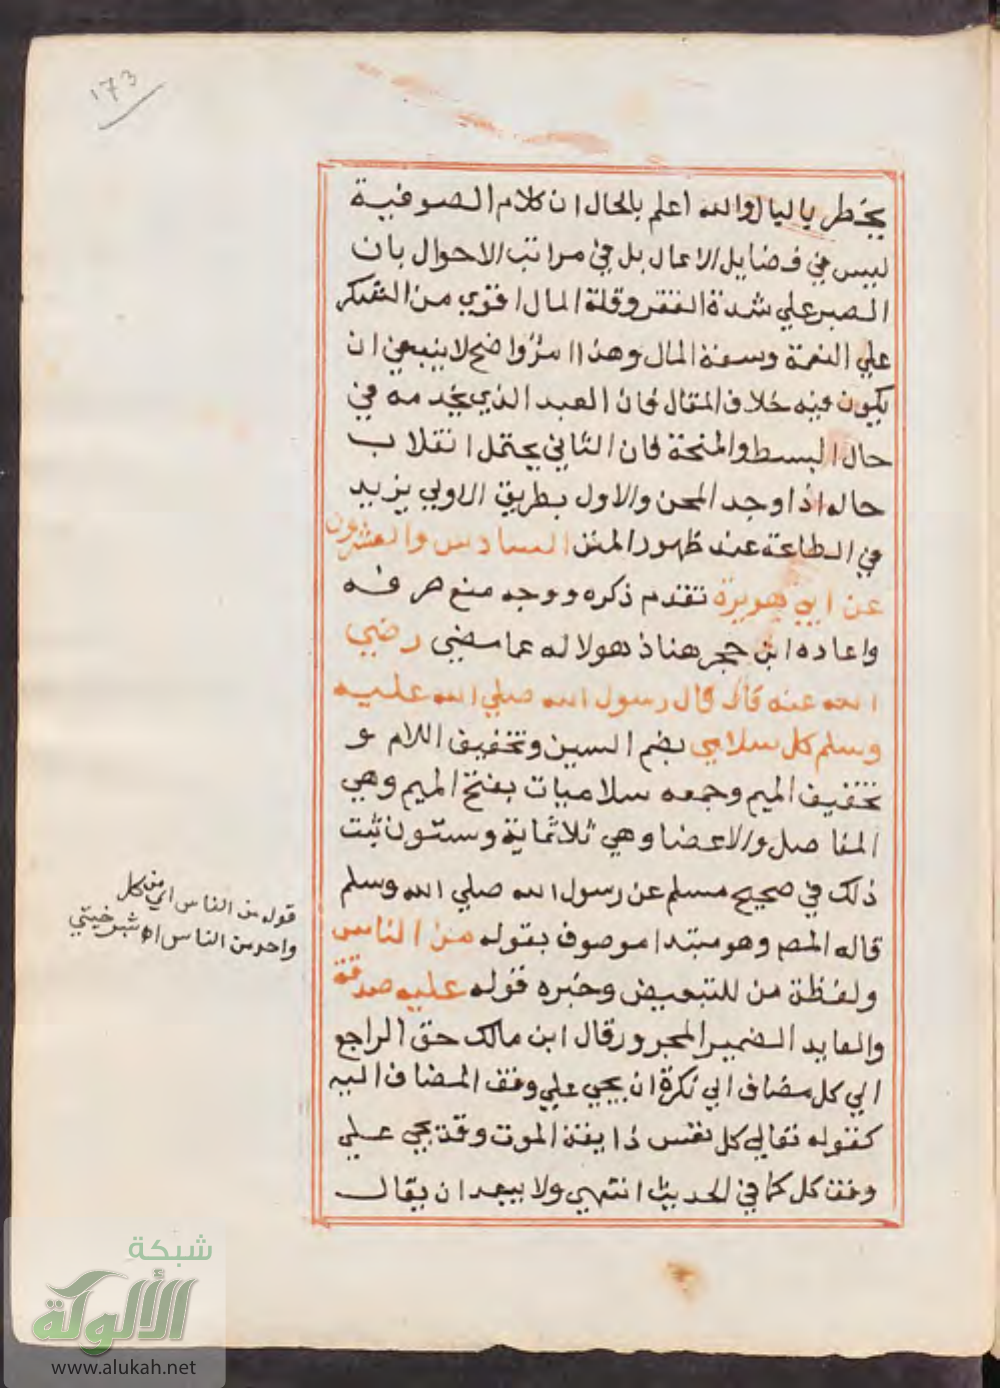 ١٧٣
يخطر بالبال والله اعلم بالحال ان كلام الصوفية
ليس في فضايل الاعمال بل في مراتب الاحوال بان
الصبر علي شدة الفقر وقلة المال اقوي من الشكر
علي النعمة وسعة المال وهذا امر واضح لا ينبغي ان
يكون فيه خلاف المقال فان العبد الذي يخدمه في
حال البسط والمنحة فان الثاني يحتمل انقلاب
حاله اذا وجد المحن والاول بطريق الاولي يزيد
في الطاعة عند ظهور المنن السادس والعشرون
عن ابي هريرة تقدم ذكره ووجه منع صرفه
واعاده ابن حجر هنا ذهولا له عما مضي رضي
الله عنه قال قال رسول الله صلي الله عليه
وسلم كل سلامي بضم السين وتخفيف اللام و
تخفيف الميم وجمعه سلاميات بفتح الميم وهي
المفاصل والاعضا وهي ثلاثماية وستون ثبت
ذلك في صحيح مسلم عن رسول الله صلي الله وسلم
قاله المصر وهو مبتدا موصوف بقوله من الناس
ولفظة من للتبعيض وخبره قوله عليه صدقة
والعايد الضمير المجرور قال ابن مالك حق الراجع
الي كل مضاف الي نكرة ان يجي علي وفق المضاف اليه
كقوله تعالي كل نفس ذايقة الموت وقد يجي علي
وفق كل كما في الحديث انتهي ولا يبعد ان يقال
قوله من الناس اي من كل
واحد من الناس اه شبرخيتي
شبكة
الألوكة
www.alukah.net